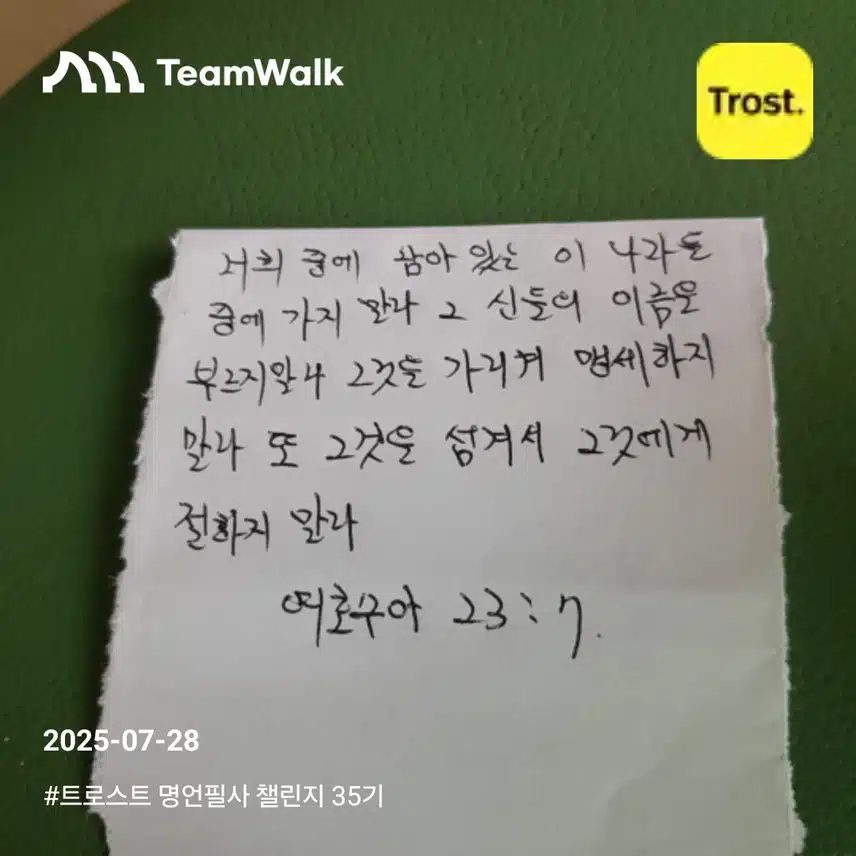 TeamWalk
Trost.
너희 중에 남아 있는 이 나라들
중에 가지 말라 그 신들의 이름을
부르지말라 그것을 가리켜 맹세하지
말라 또 그것을 섬겨서 그것에게
절하지 말라
여호수아 23:7.
2025-07-28
#트로스트 명언필사 챌린지 35기